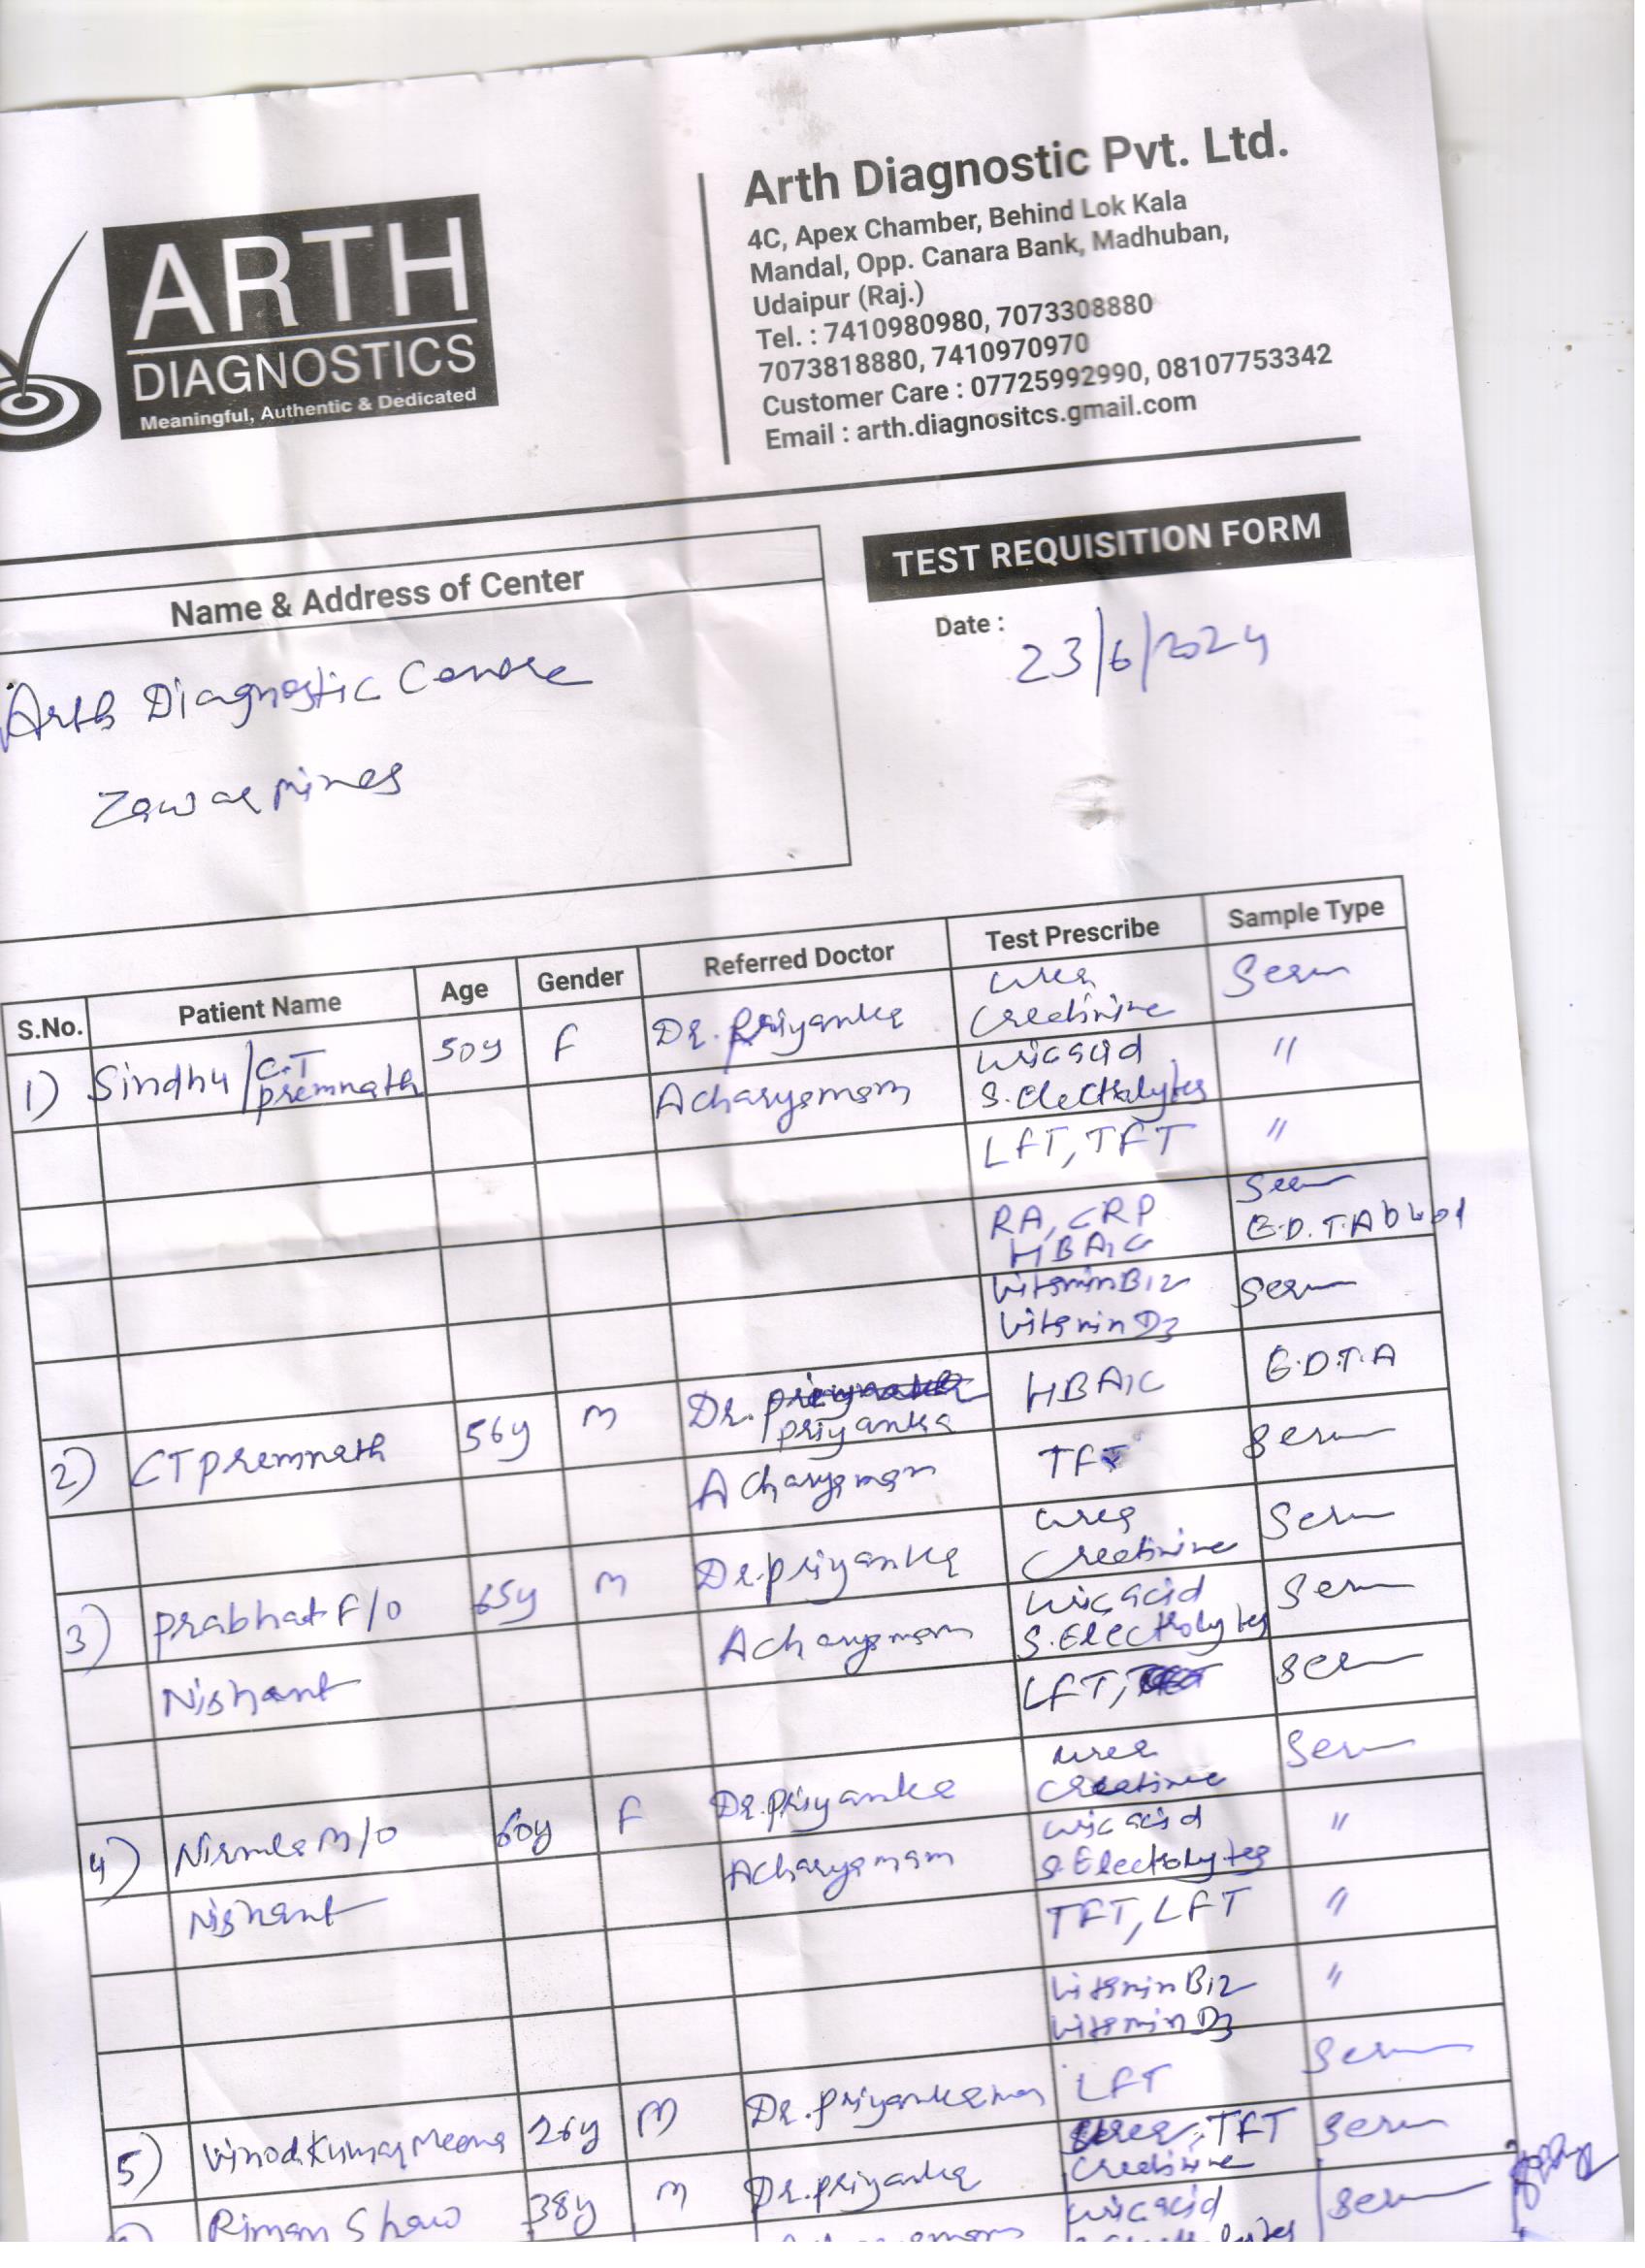 ARTH
DIAGNOSTICS
Meaningful, Authentic & Dedicated
Arth Diagnostic Pvt. Ltd.
4C, Apex Chamber, Behind Lok Kala
Mandal, Opp. Canara Bank, Madhuban,
Udaipur (Raj.)
Tel. : 7410980980, 7073308880
7073818880, 7410970970
Customer Care : 07725992990, 08107753342
Email : arth.diagnositcs.gmail.com
Name & Address of Center
Arth Diagnostic Centre
Zawar mines
TEST REQUISITION FORM
Date : 23/6/2024
S.No. Patient Name Age Gender Referred Doctor Test Prescribe Sample Type
1) Sindhu / C.T premnath 50y F Dr. Priyanka Urea Creatinine Serum
Acharya mam Uric acid S. Electrolytes "
LFT, TFT "
RA, CRP Serum
HBA1C E.D.T.A blood
Vitamin B12 Serum
Vitamin D3
2) CT premnath 56y M Dr. priyanka HBA1C E.D.T.A
Acharya mam TFT Serum
3) Prabhat F/o 65y M Dr. priyanka Urea Creatinine Serum
Nishant Acharya mam Uric acid S. Electrolytes Serum
LFT, Serum
4) Nirmla M/o 60y F Dr. priyanka Urea Creatinine Serum
Nishant Acharya mam Uric acid S. Electrolytes "
TFT, LFT "
Vitamin B12 "
Vitamin D3
5) Vinod Kumar Meena 26y M Dr. Priyanka mam LFT Serum
Riman Shaw 38y M Dr. priyanka Urea, TFT Serum
Creatinine
Uric acid Serum